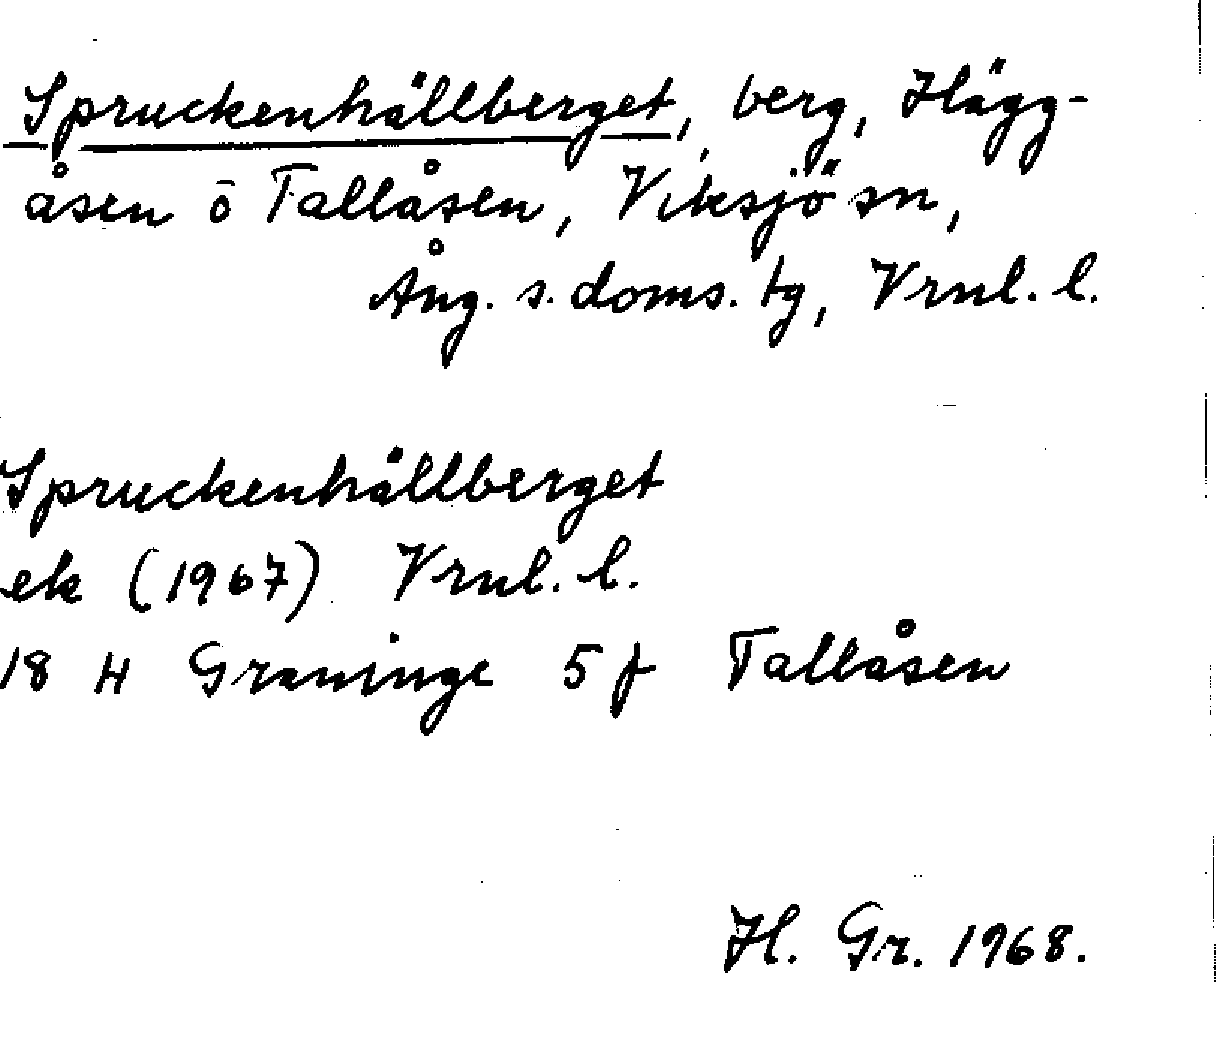 Spruckenhällberget, berg, Hägg-
åsen ö Tallåsen, Viksjö sn,
Ång. s. doms. tg, Vrnl. l.
Spruckenhällberget
ek (1967) Vrnl. l.
18 H Graninge 5 f Tallåsen
H. Gr. 1968.